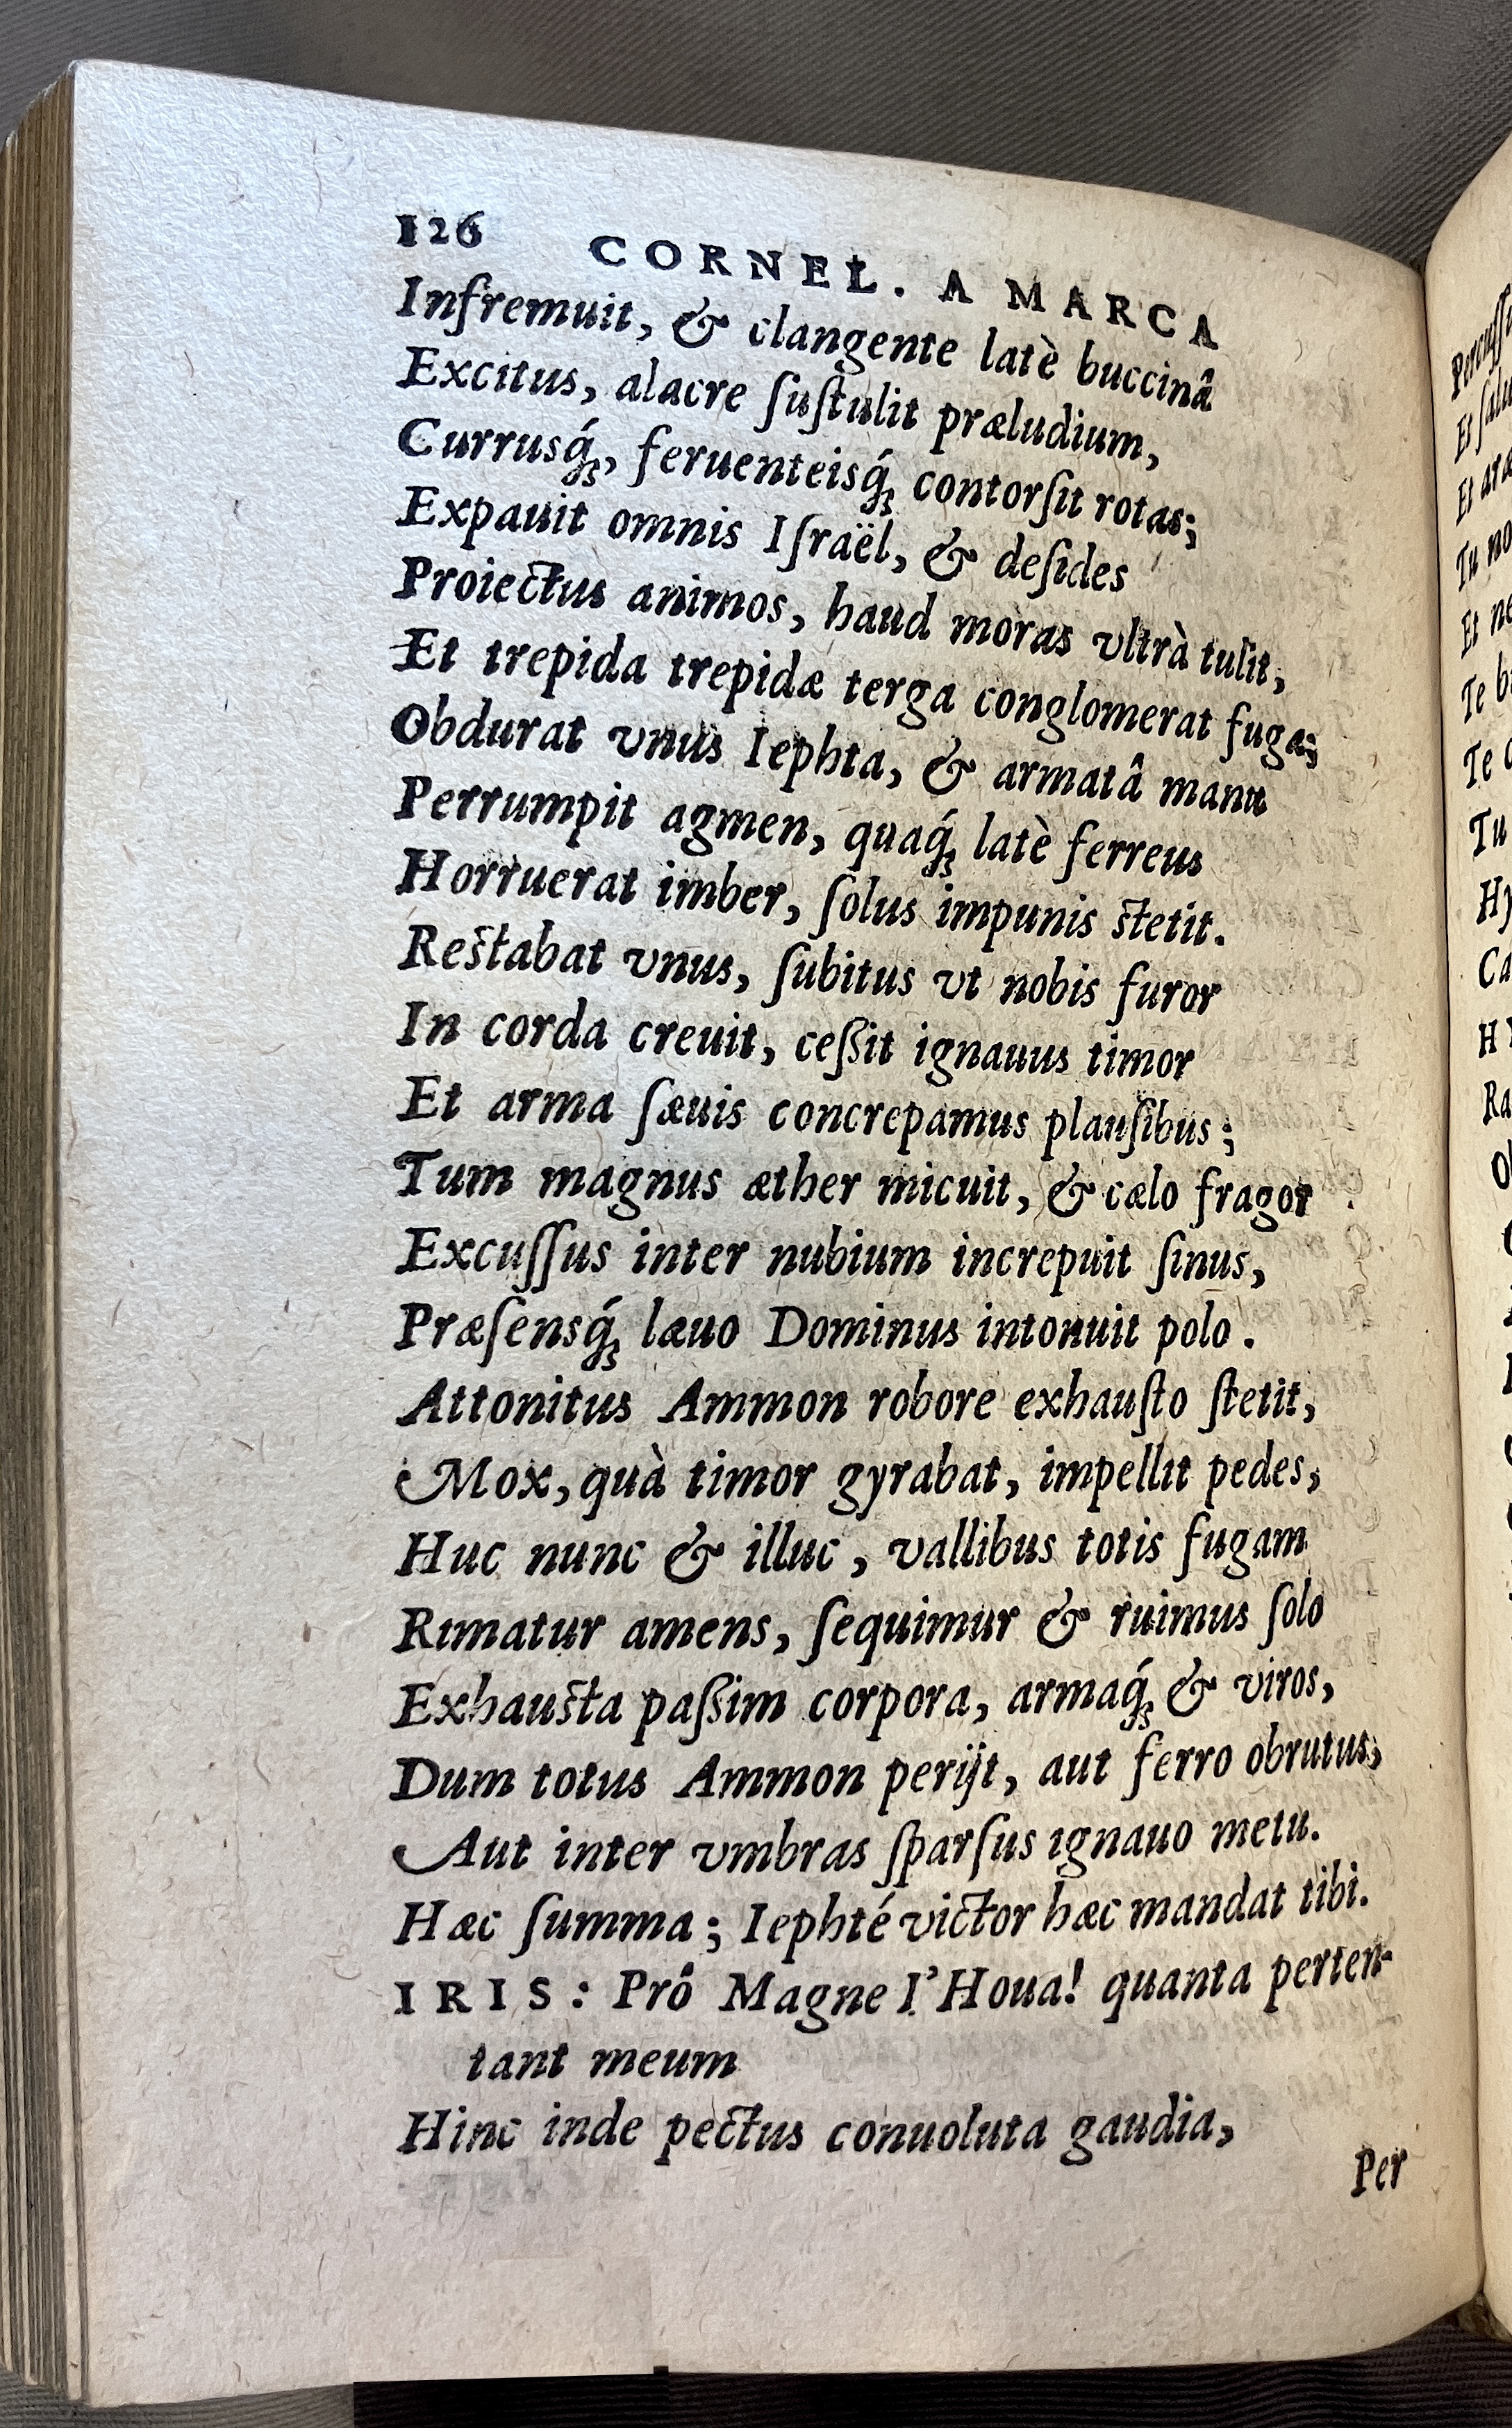 126 CORNEL. A MARCA
Infremuit, & clangente latè buccinâ
Excitus, alacre ſuſtulit præludium,
Currusq́ꝫ, feruenteisq́ꝫ contorſit rotas;
Expauit omnis Iſraël, & deſides
Proiectus animos, haud moras vltrà tulit,
Et trepida trepidæ terga conglomerat fugæ;
Obdurat vnus Iephta, & armatâ manu
Perrumpit agmen, quaq́ꝫ latè ferreus
Horruerat imber, ſolus impunis ſtetit.
Reſtabat vnus, ſubitus vt nobis furor
In corda creuit, ceßit ignauus timor
Et arma ſæuis concrepamus plauſibus;
Tum magnus æther micuit, & cælo fragor
Excuſſus inter nubium increpuit ſinus,
Præſensq́ꝫ læuo Dominus intonuit polo.
Attonitus Ammon robore exhauſto ſtetit,
Mox, quà timor gyrabat, impellit pedes,
Huc nunc & illuc, vallibus totis fugam
Rimatur amens, ſequimur & ruimus ſolo
Exhauſta paßim corpora, armaq́ꝫ & viros,
Dum totus Ammon perijt, aut ferro obrutus,
Aut inter vmbras ſparſus ignauo metu.
Hæc ſumma; Iephté victor hæc mandat tibi.
IRIS: Prô Magne I'Houa! quanta perten-
tant meum
Hinc inde pectus conuoluta gaudia,
Per
Et
Et
Tu
Et
Te
Te
Tu